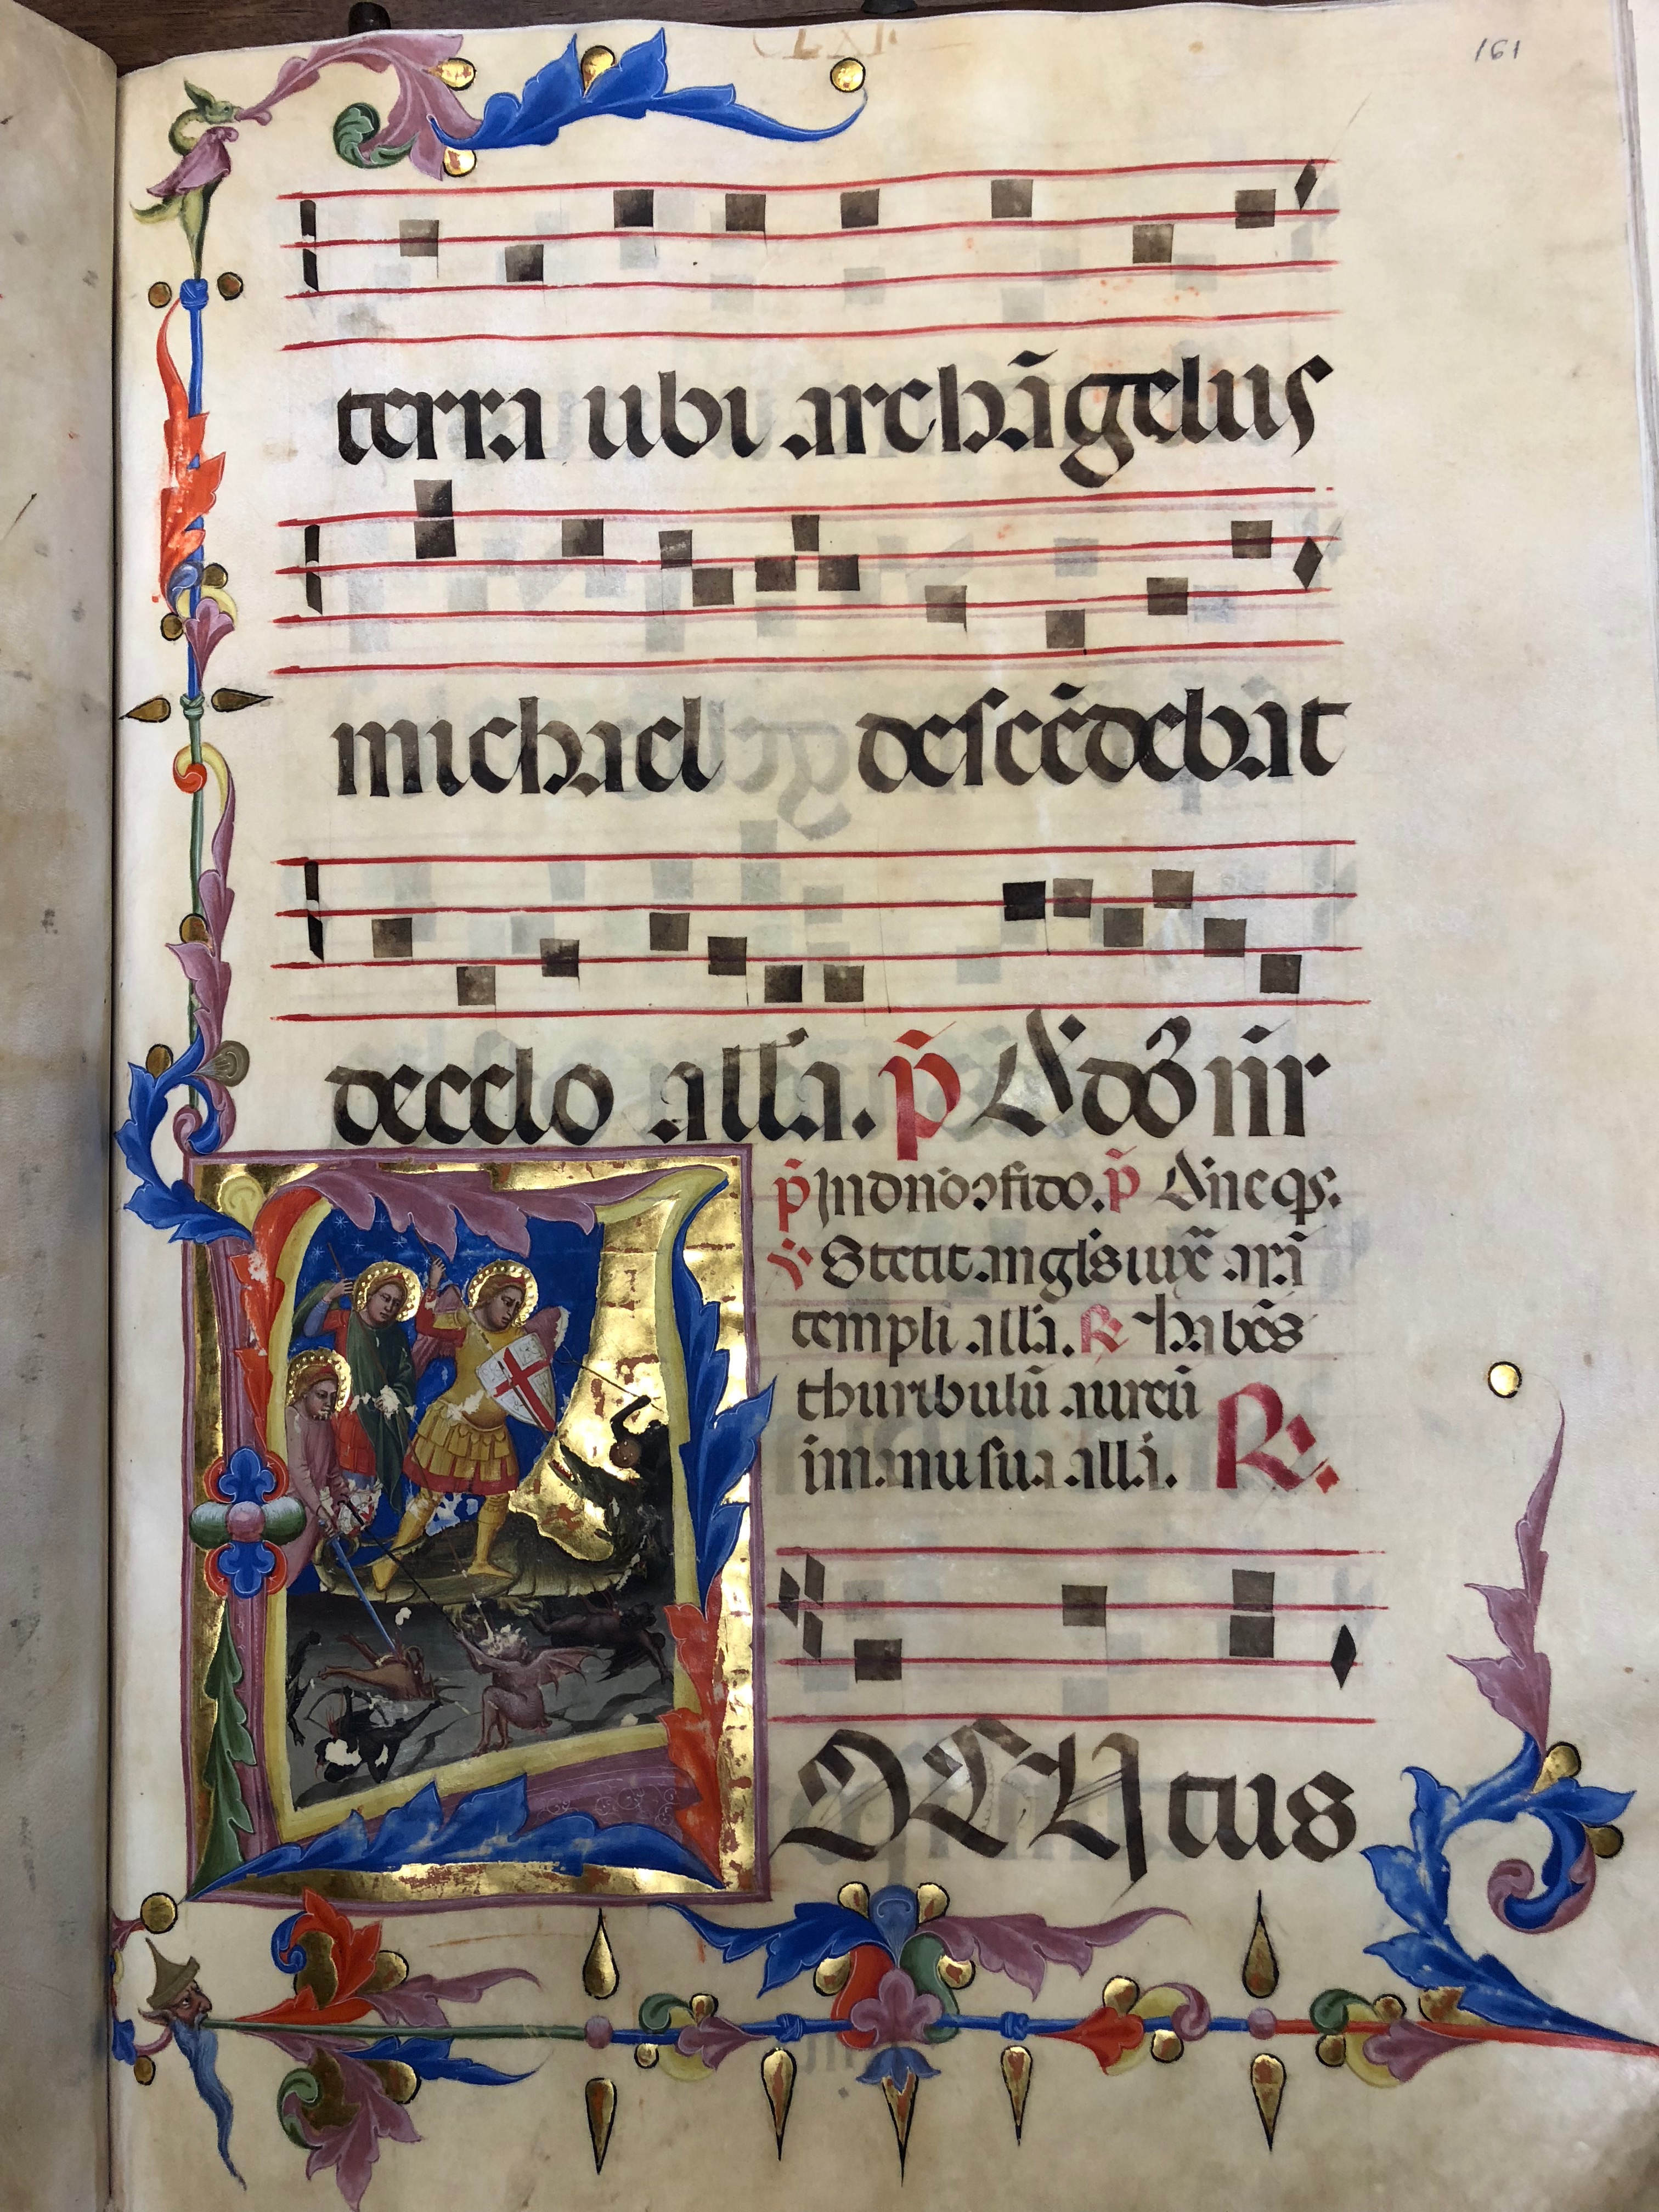 CLXI
161
terra ubi archāgelus
michael descēdebat
decelo all'a. p̄ Ad dō nīr
p̄ In dnō ɔfido. p̄ Dn̄e qs.
℣ Stetit angl's iuxͣ arā
templi all'a. ℟ habēs
thuribulū aureū
ī manu sua all'a. ℟.
DETItus